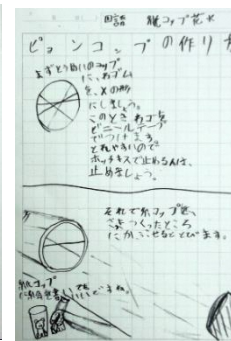 国語 紙コップ花火
ピョンコップの作り方
まずとう明のコップ
に、わゴム
を、×の形
にしましょう。
このとき わゴムを
ビニールテープ
でつけます
とれやすいので
ホッチキスで止めるんは、
止めましょう。
それで糸コップを、
さっきつくったところ
にかぶせるととびます。
紙コップ
いいですね。